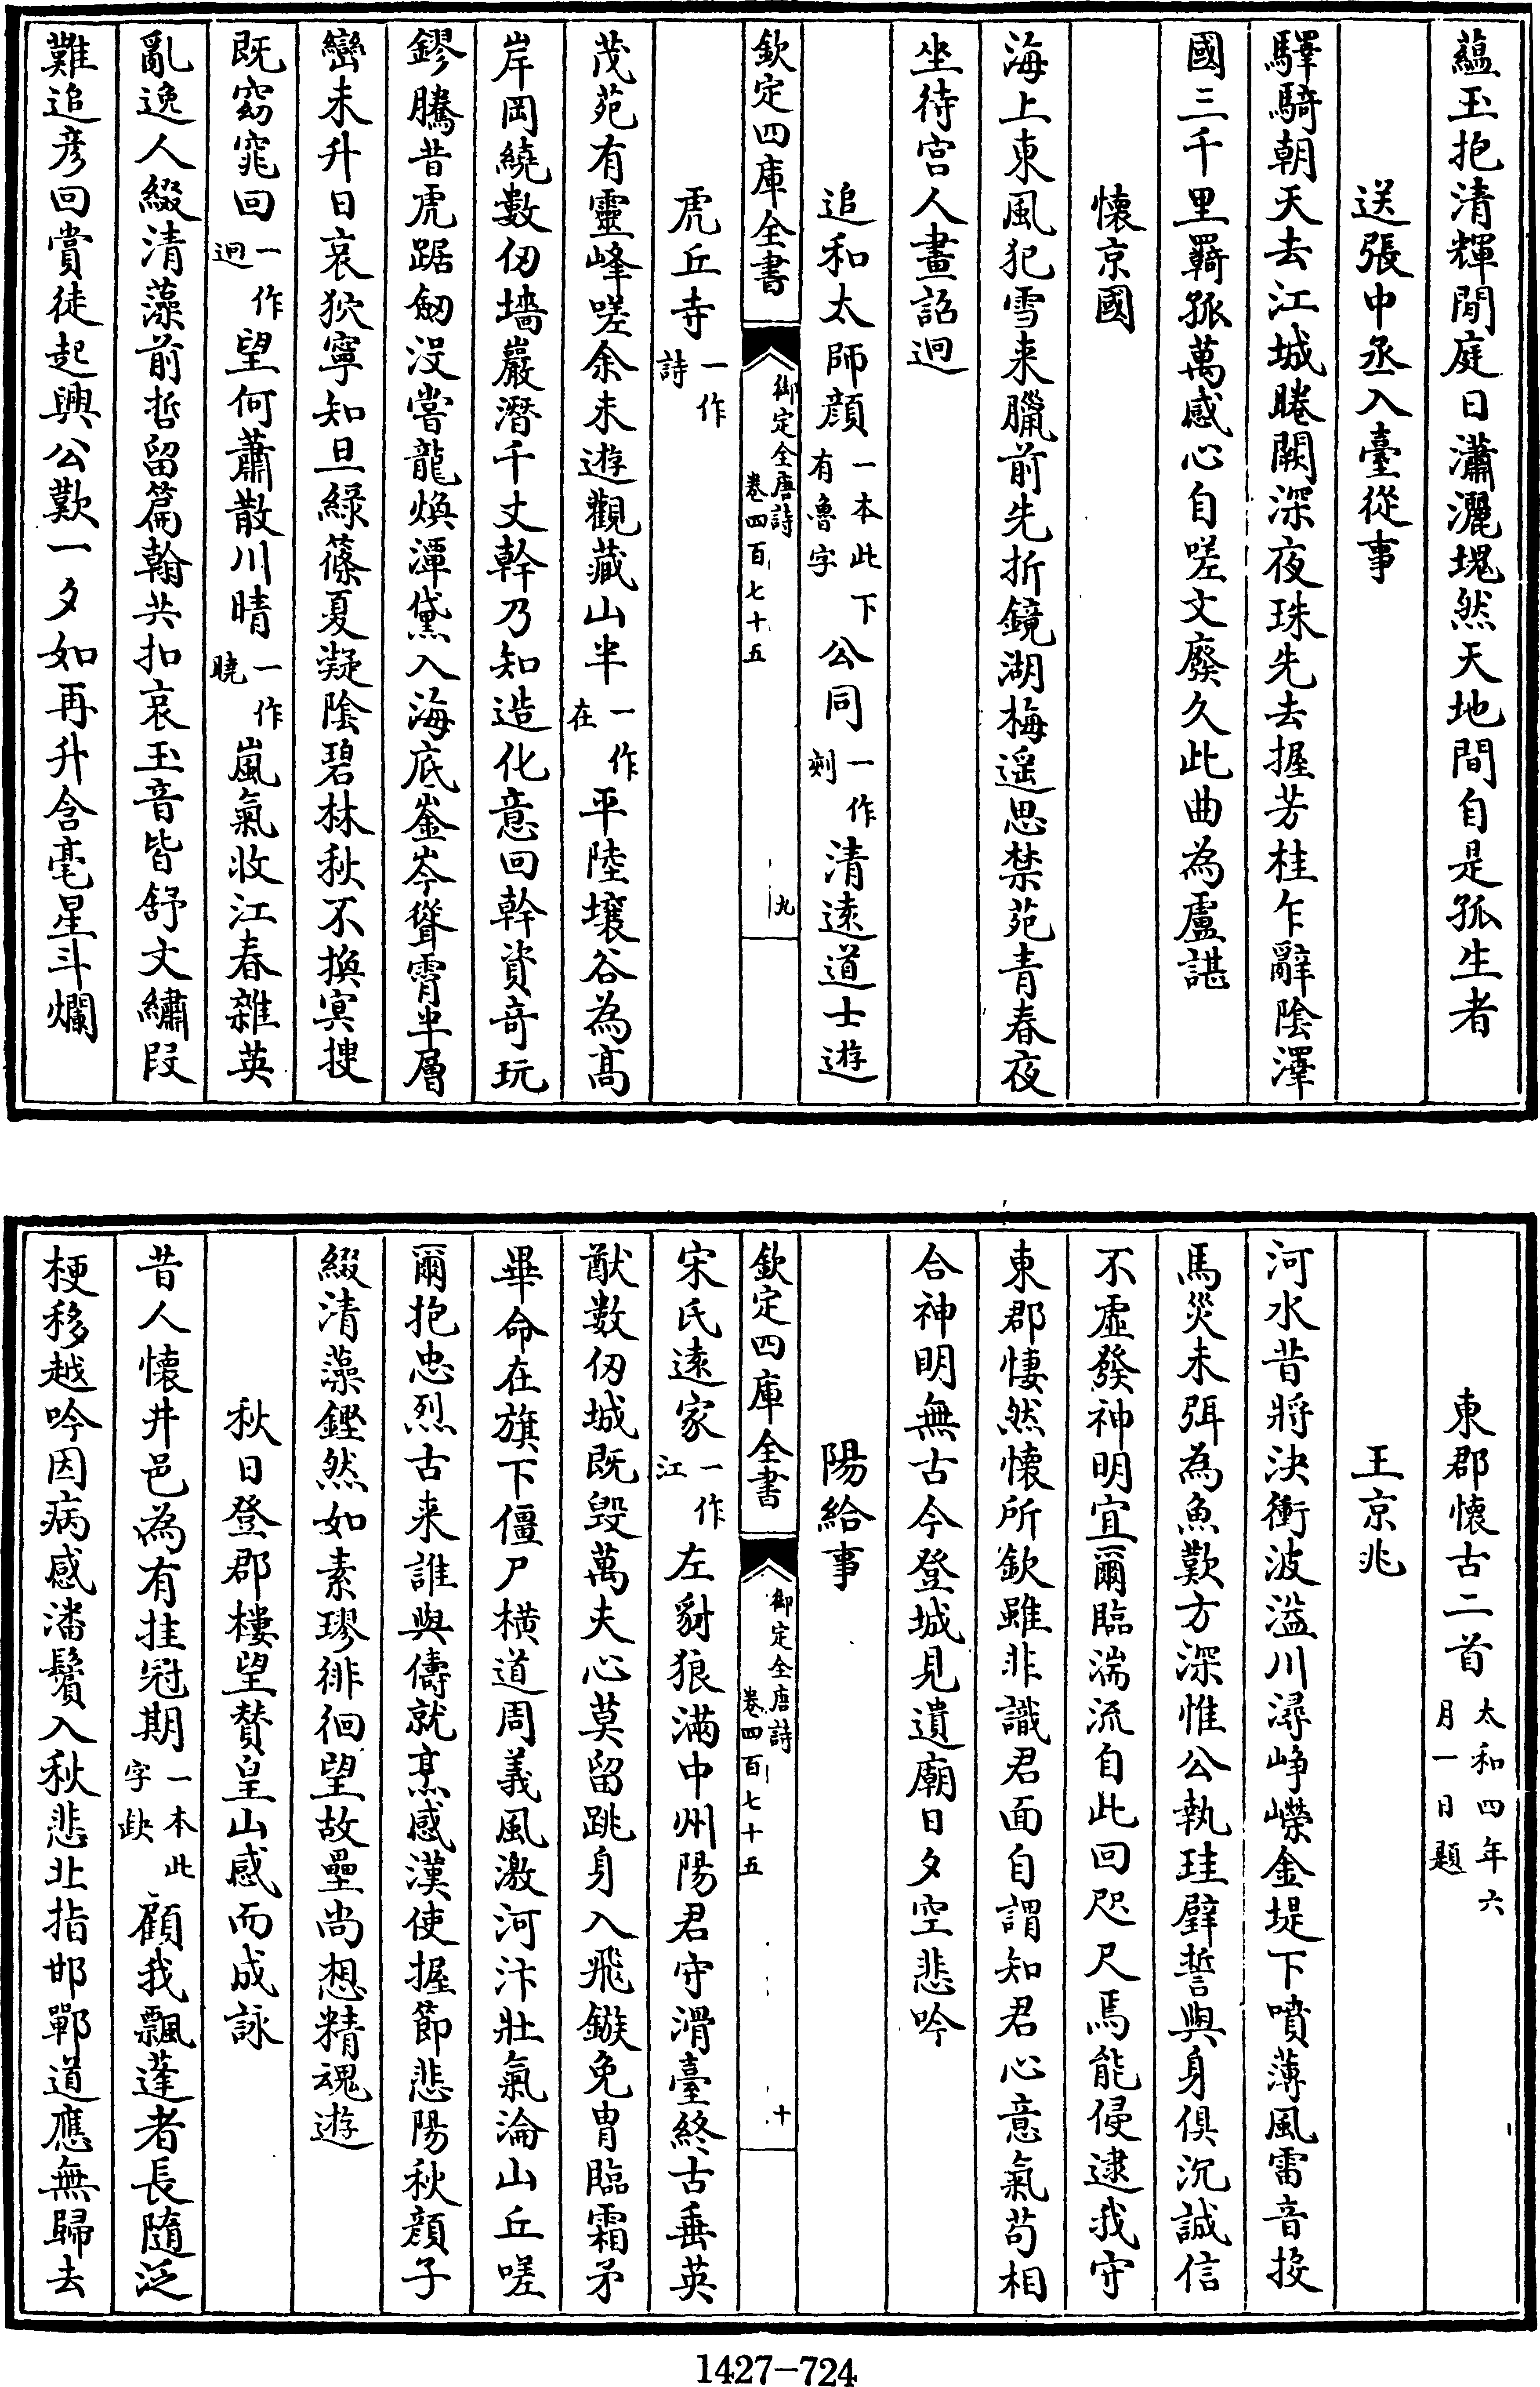 蘊玉抱清輝閒庭日瀟灑塊然天地間自是孤生者
送張中丞入臺從事
驛騎朝天去江城眷闕深夜珠先去握芳桂乍辭陰澤
國三千里羇孤萬感心自嗟文廢久此曲為盧諶
懷京國
海上東風犯雪来臘前先折鏡湖梅遥思禁苑青春夜
坐待宮人畫詔迴
追和太師顔一本此下有魯字公同一作刻清逺道士遊
欽定四庫全書 御定全唐詩卷四百七十五 九
虎丘寺一作詩
茂苑有靈峰嗟余未遊觀藏山半一作在平陸壤谷為髙
岸岡繞數仞墻巖潛千丈幹乃知造化意回斡資奇玩
鏐騰昔虎踞劒没嘗龍煥潭黛入海底崟岑聳霄半層
巒未升日哀狖寧知旦緑篠夏凝隂碧林秋不換㝠搜
既窈窕回一作迥望何蕭散川晴一作曉嵐氣收江春雜英
亂逸人綴清藻前哲留篇翰共扣哀玉音皆舒文繡段
難追彦回賞徒起興公歎一夕如再升含毫星斗爛
東郡懷古二首太和四年六月一日題
王京兆
河水昔將決衝波溢川潯峥嶸金堤下噴薄風雷音投
馬災未弭為魚歎方深惟公執珪璧誓與身俱沉誠信
不虚發神明宜爾臨湍流自此回咫尺焉能侵逮我守
東郡悽然懷所欽雖非識君面自謂知君心意氣苟相
合神明無古今登城見遺廟日夕空悲吟
陽給事
欽定四庫全書 御定全唐詩卷四百七十五 十
宋氏逺家一作江左豺狼滿中州陽君守滑臺終古垂英
猷數仞城既毁萬夫心莫留跳身入飛鏃免胄臨霜矛
畢命在旗下僵尸横道周義風激河汴壯氣淪山丘嗟
爾抱忠烈古来誰與儔就烹感漢使握節悲陽秋顔子
綴清藻鏗然如素璆徘徊望故壘尚想精魂遊
秋日登郡樓望贊皇山感而成詠
昔人懷井邑為有挂冠期一本此字缺顧我飄蓬者長隨泛
梗移越吟因病感潘鬢入秋悲北指邯鄲道應無歸去
1427-724